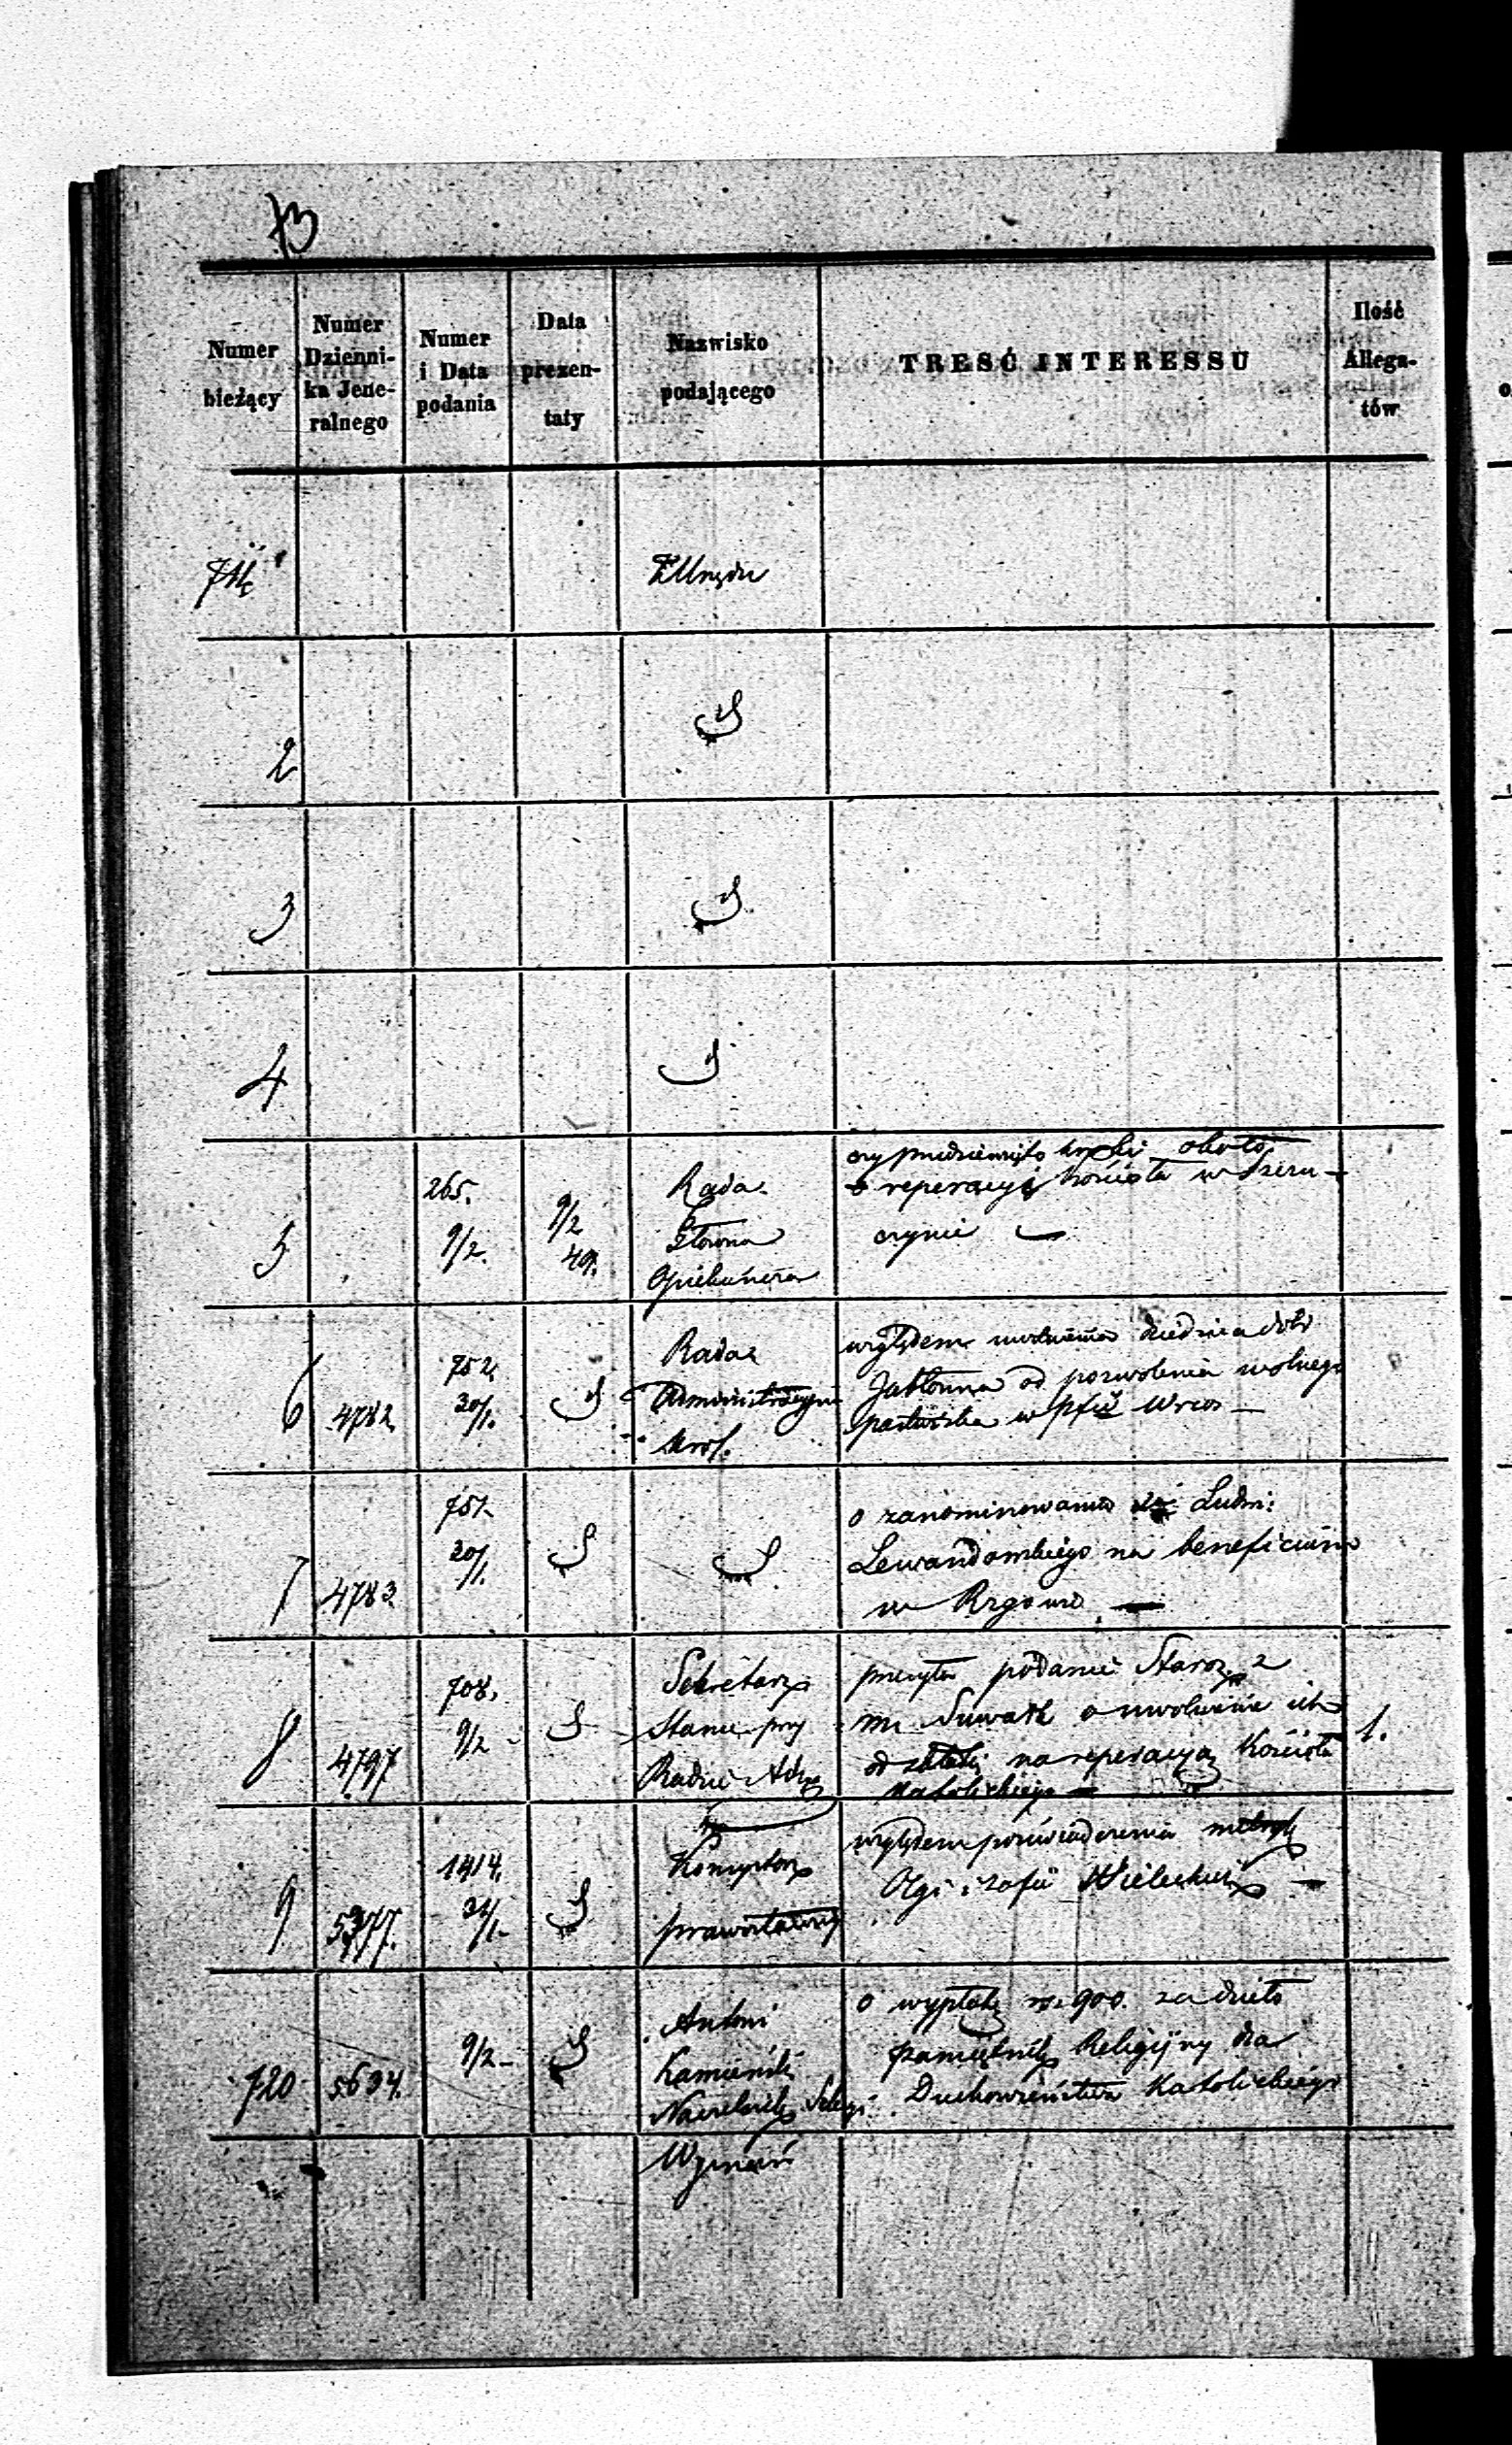 73
Numer
bieżący
Numer
Dzienni-
ka Jene-
ralnego
Numer
i Data
podania
Data
prezen-
taty
Nazwisko
podającego
TRESĆ INTERESSU
Ilość
Allega-
tów
Z Urzędu
2
3
4
5
265.
9/2.
9/2
49.
Rada
Główna
Opiekuńcza
czy przedsięwzięto kroki około
reperacyi Kościoła w Szcru-
czynie —
6
4782
752
30/1.
Rada
Administracyjna
Król.
względem uwolnienia dziedzica dóbr
Jabłonna od pozwolenia wolnego
pastwiska w Wrios —
7
4783
757
20/1.
o zanominowanie Ludw:
Lewandowskiego na beneficium
w Rzgowie —
8
4797
708.
9/2
Sekretarz
Stanu przy
Radzie Adm
przesyła podanie Staroz. z
m. Suwałk o uwolnienie ich
od składki na reperacyą Kościoła
Katolickiego —
1.
9
5377.
1414.
31/1.
Konsystorz
prawosławny
względem poświadczenia metryk
Olgi i Zofii Wieleckich —
720
5634.
9/2 —
Antoni
Kamieński
Naczelnik Sekcyi
Wyznań
o wypłatę rs. 900. za dzieło
pamiętnik Religijny dla
Duchowieństwa Katolickiego